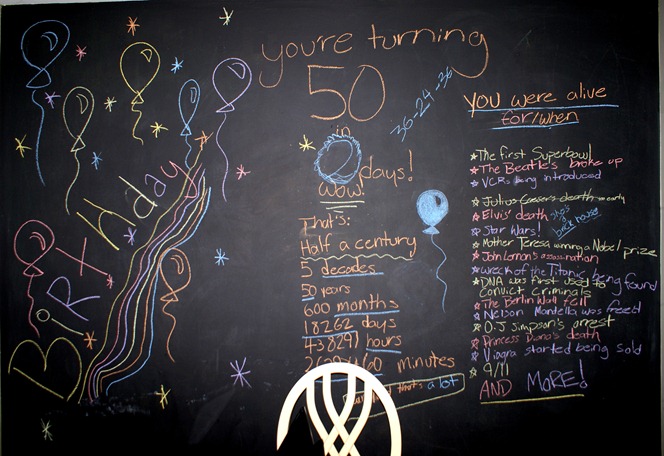 BiRtHday
you're turning
50
in
days!
wow!
36-24-36
That's:
Half a century
5 decades
50 years
600 months
18262 days
438291 hours
minutes
that's a lot
You were alive
for/when
The first Superbowl
The Beatle's broke up
VCRs being introduced
Julius Caeser's death
Elvis' death
Star Wars!
Mother Teresa winning a Nobel prize
John Lennon's assassination
wreck of the Titanic being found
DNA was first used to
convict criminals
The Berlin Wall fell
Nelson Mandella was freed
O.J Simpson's arrest
Princess Diana's death
Viagra started being sold
9/11
AND MORE!